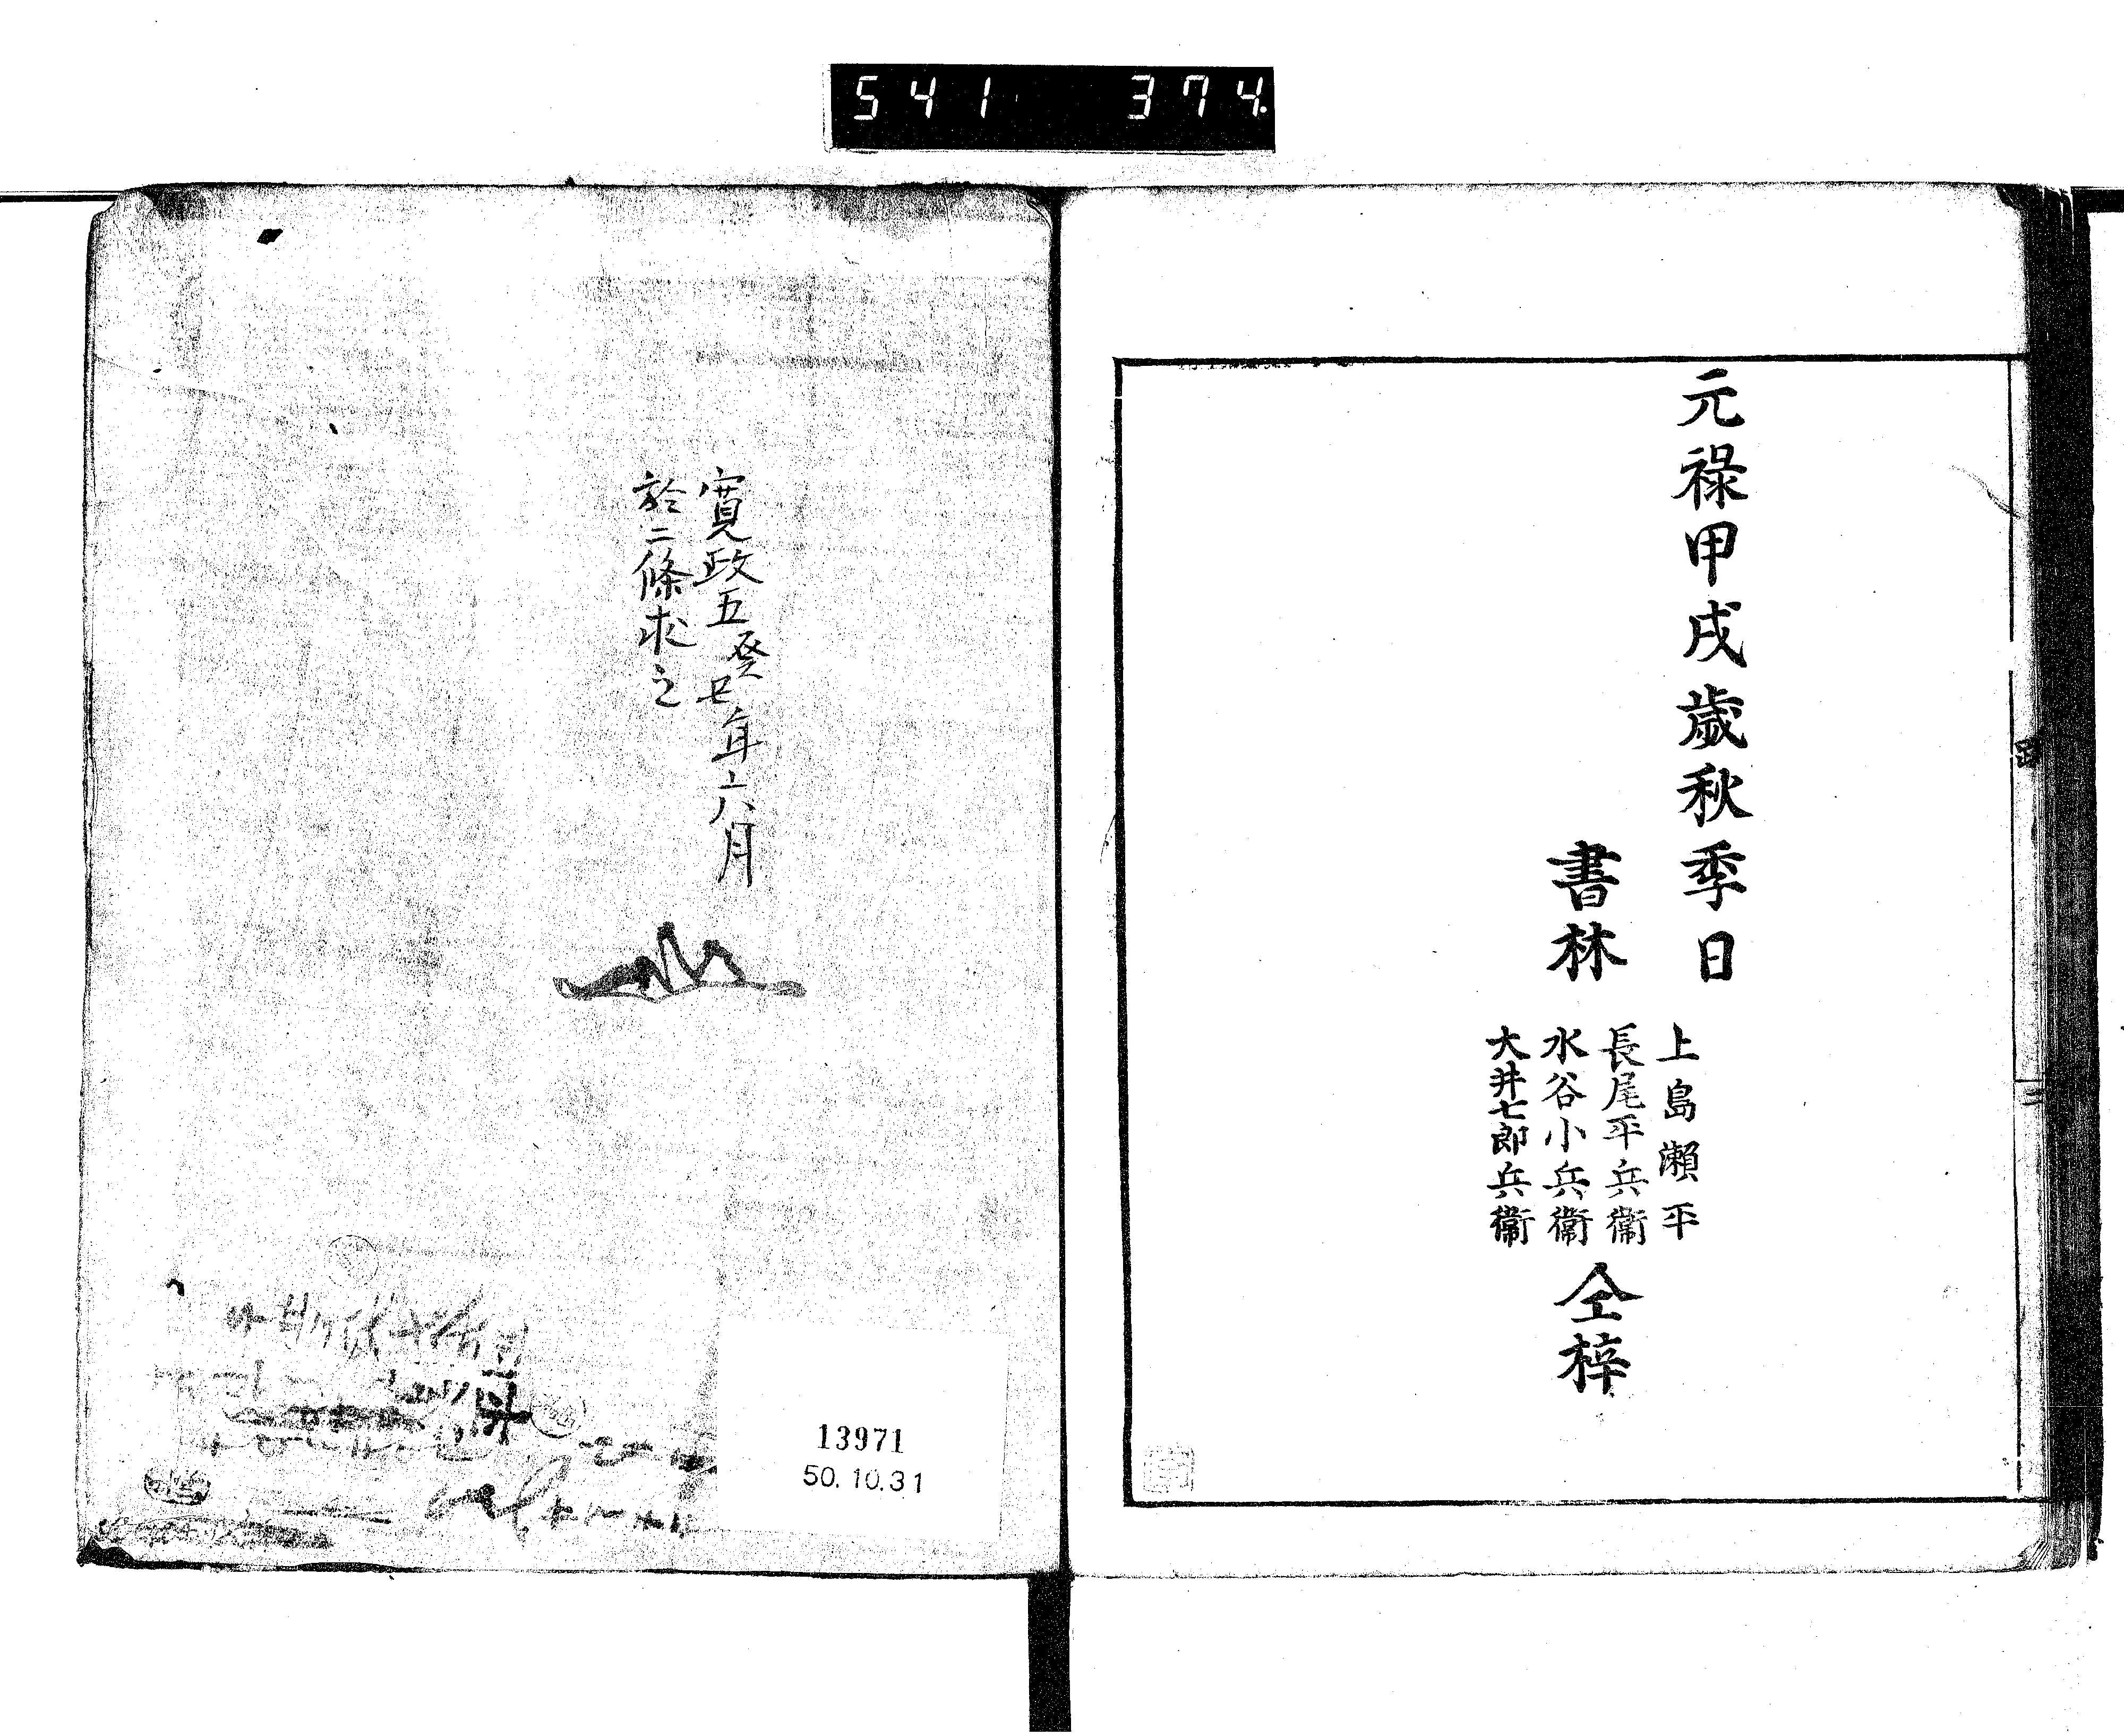 541 374
元禄甲戌歳秋季日
書林
上島瀬平
長尾平兵衛
水谷小兵衛
大井七郎兵衛
仝梓
寛政五癸丑年六月
於二條求之
13971
50.10.31